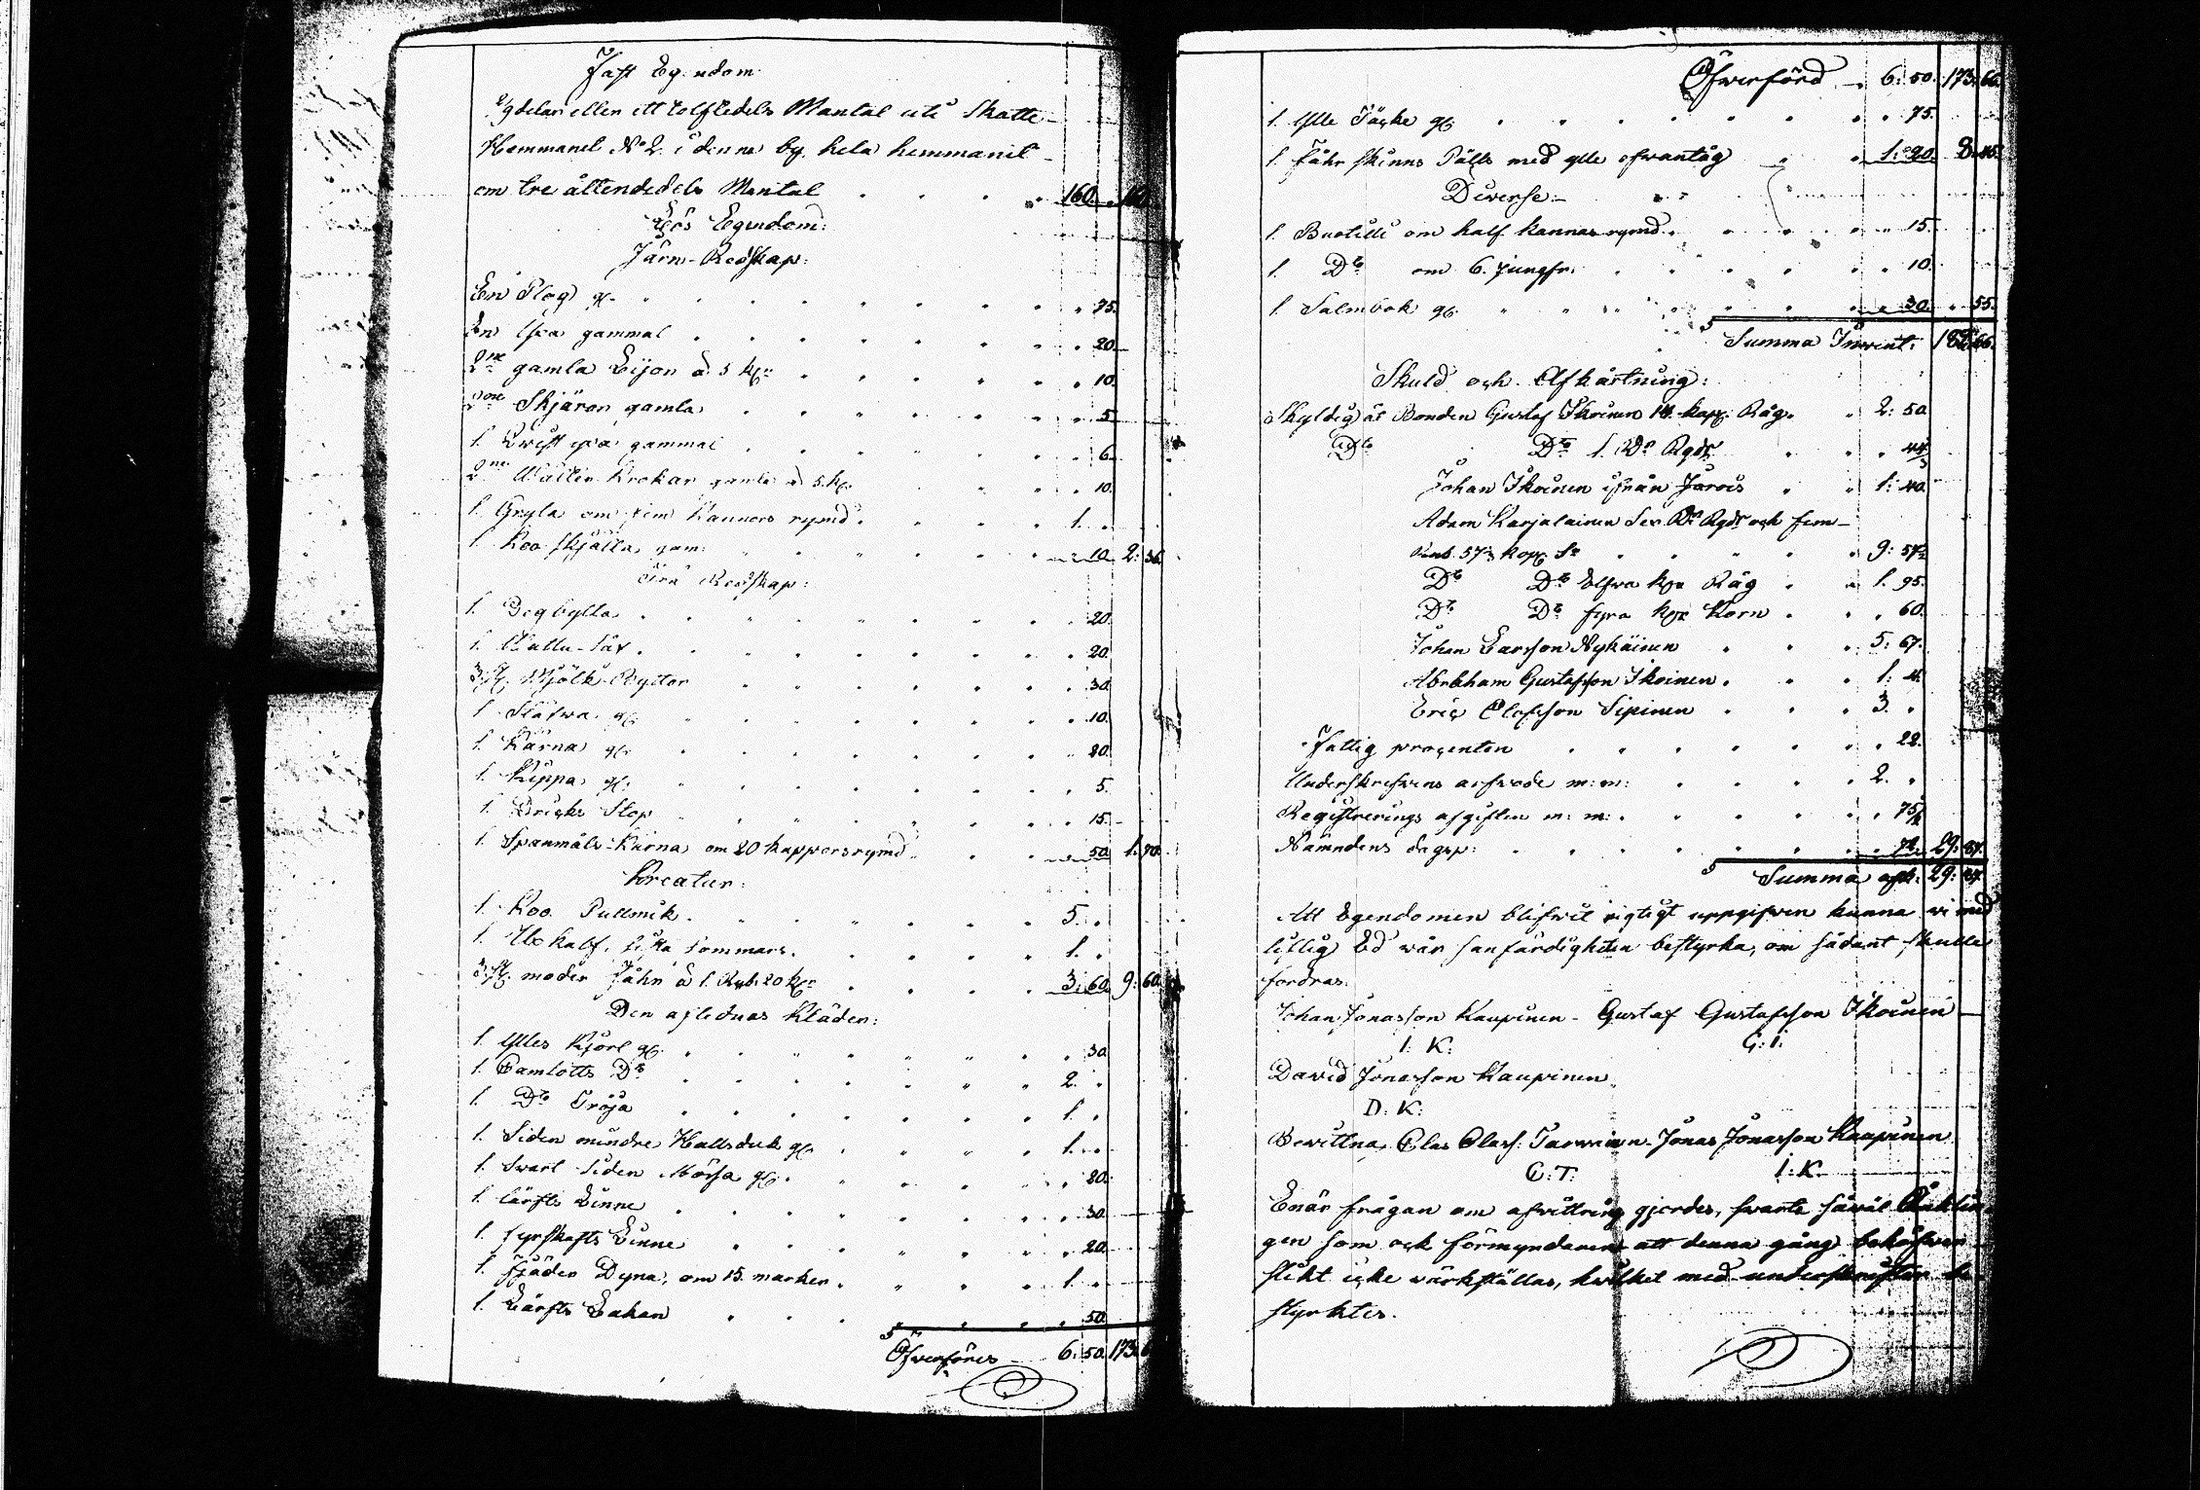 Fast Egendom
2/9delar eller ett tolftedels Mantal uti Skatte-
Hemmanet No 2 i denna by, hela hemmanet
om tre åttendedels Mantal 160. 160.
Lös Egendom:
Järn-Redskap:
En Plog gl. 75.
En Yxa gammal 20.
2ne gamla Lijon à 5 kp: 10.
2ne Skjäror gamla 5.
1. yxa gammal 6.
2ne Krokar gamla à 5 kp: 10.
1. Gryta om fem kannors rymd 1.
1. Koo skjälla gam: 10. 2: 36.
Trä Redskap:
1. Degbytta 20.
1. 20.
3 st. Mjölk-Byttor 30.
1. gl. 10.
1. Kärna gl. 20.
1. Kippa gl: 5.
1. Dricks Stop 15.
1. Spanmåls-Kärna om 20 kappors rymd 50. 1: 70.
Kreatur:
1. Koo Pullmik 5.
1. kalf, sista sommars. 1.
3 st. moder Fåhr à 1. Rub: 20 kp: 3: 60. 9: 60.
Den aflednas Kläder:
1. Ylles Kjorl gl. 30.
1. Camlotts Do 2.
1. Do Tröja 1.
1. Siden mindre Hallsduk gl. 1.
1. Svart Siden Mössa gl. 20.
1. lärfts Linne 30.
1. fyrskafts Linne 20.
1. fjäder Dyna, om 15. marker 1.
1. Lärfts Lakan 50.
Öfverföres 6: 50. 173:
Öfverförd 6: 50. 173: 66.
1. Ylle Täcke gl. 75.
1. Fåhr skinns Pälls med ylle ofvantåg 1: 20. 8: 45.
Diverse:
1. Buotilli om half kannas rymd 15.
1. Do om 6. jungfr: 10.
1. Salmbok gl. 30. 55.
Summa Invent: 182: 66.
Skuld och Afkårtning:
Skyldig åt Bonden Gustaf Ikoinen 10 kapp: Råg 2: 50
Do Do 1. Do Rgds
Johan Ikoinen ifrån Jarvis 1: 40.
Adam Karjalainen Sex Ro Rgds och fem-
kop: Sr 9: 57
Do Do Elfva kpr Råg 1. 95.
Do Do fyra kpr Korn 60.
Johan Larsson Nykäinen 5: 67.
Abraham Gustafsson Ikoinen 1: 4.
Eric Olofsson Sipinen 3.
Fattig procenten 22.
Underskrefvens arfvode m: m: 2.
Registrerings afgiften m: m: 75
Nämndens dagsp: 29: 87.
Summa afk: 29: 87.
Att Egendomen blifvit rigtigt uppgifven kunna vi med
liflig Ed vår sanfärdigheten bestyrka, om sådant skulle
fordras.
Johan Jonasson Kaupinen - Gustaf Gustafsson Ikoinen
I: K: G: I:
David Jonasson Kaupinen
D: K:
Bevittna, Clas Olofs: Tarvainen - Jonas Jonasson Kaupinen
C: T: I: K.
Enär frågan om afvittring gjordes, svarte såväl Änklin
gen som ock förmyndaren att denna gång behöfver
slikt icke värkställas, hvilket med underskrifter be-
styrktes.